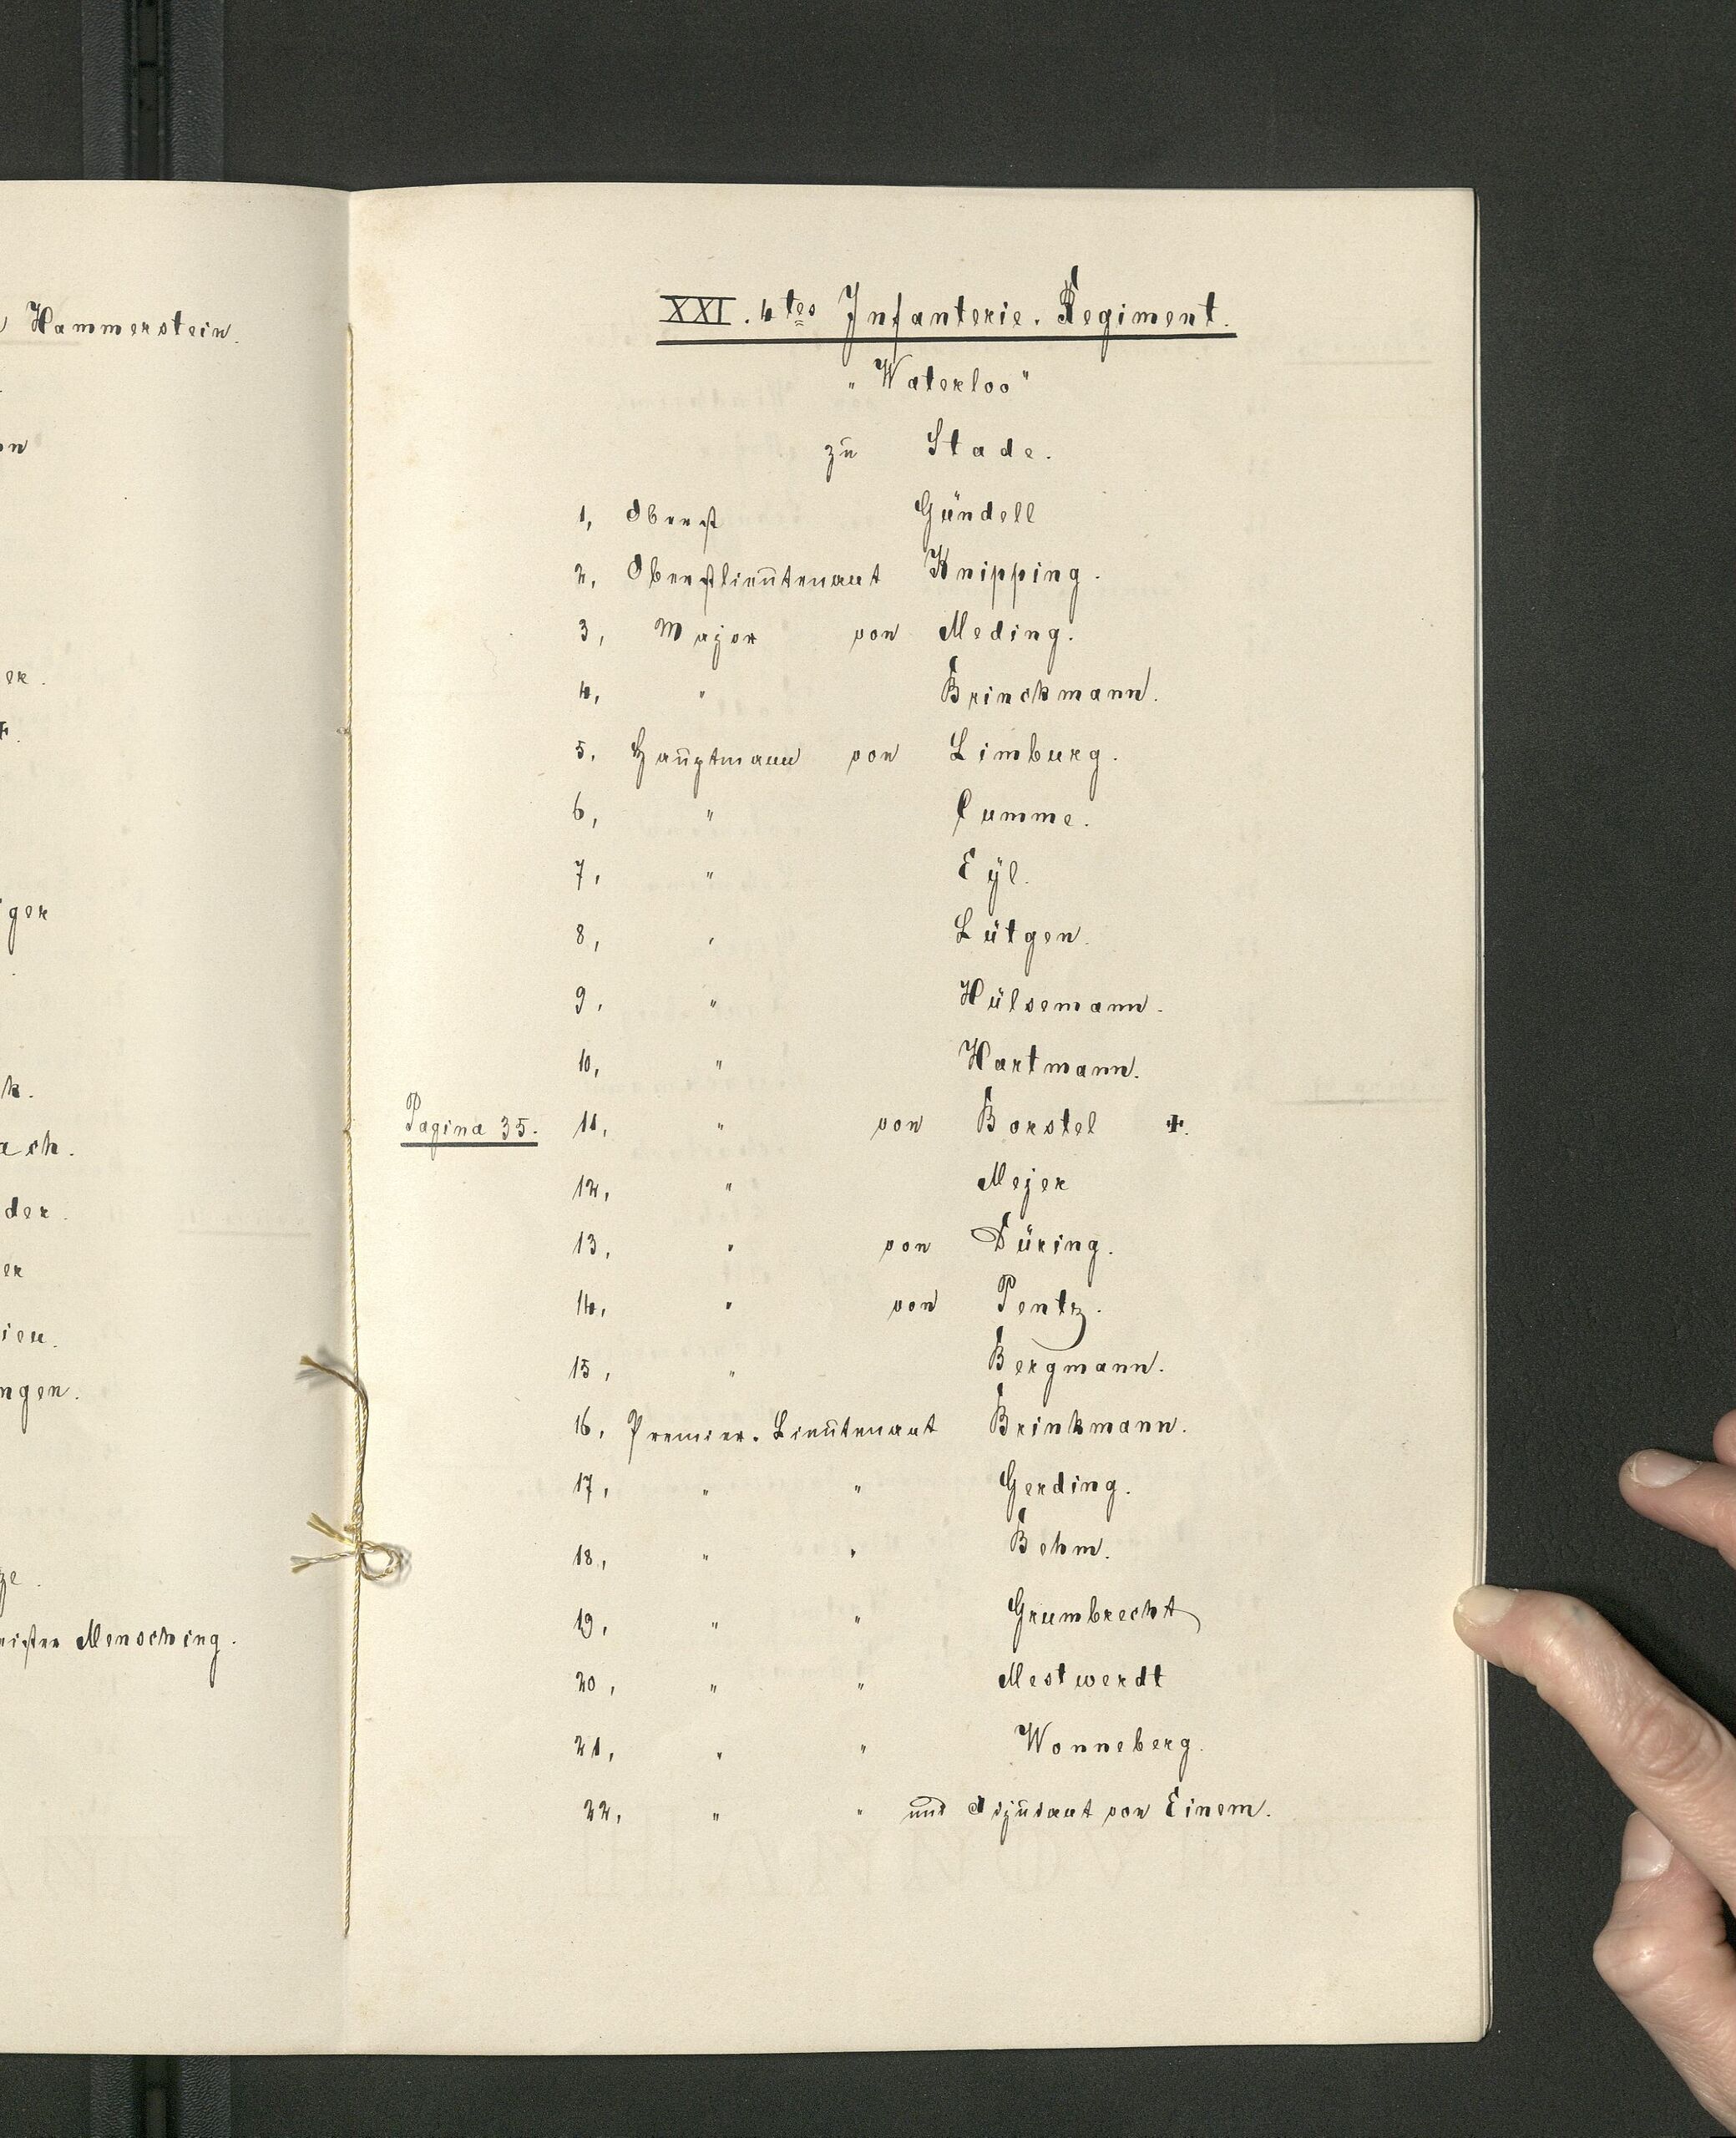 Hammerstein.
XXI. 4tes Infanterie. Regiment.
"Waterloo"
zu Stade.
1, Oberst Gündell
2, Oberstlieutenant Knipping.
3, Major von Meding.
4, " Brinckmann.
5. Hauptmann von Limburg.
6, " Cumme.
7, " Eÿl.
8, " Lütgen.
9, " Hülsemann.
10, " Hartmann.
Pagina 35. 11, " von Borstel †.
12, " Mejer
13, " von Düring.
14, " von Pentz.
15, " Bergmann.
16, Premier-Lieutenant Brinkmann.
17, " " Gerding.
18, " " Behm.
19, " " Grumbrecht
20, " " Mestwerdt
21, " " Wonneberg.
22, " " und Adjudant von Einem.
Mensching.